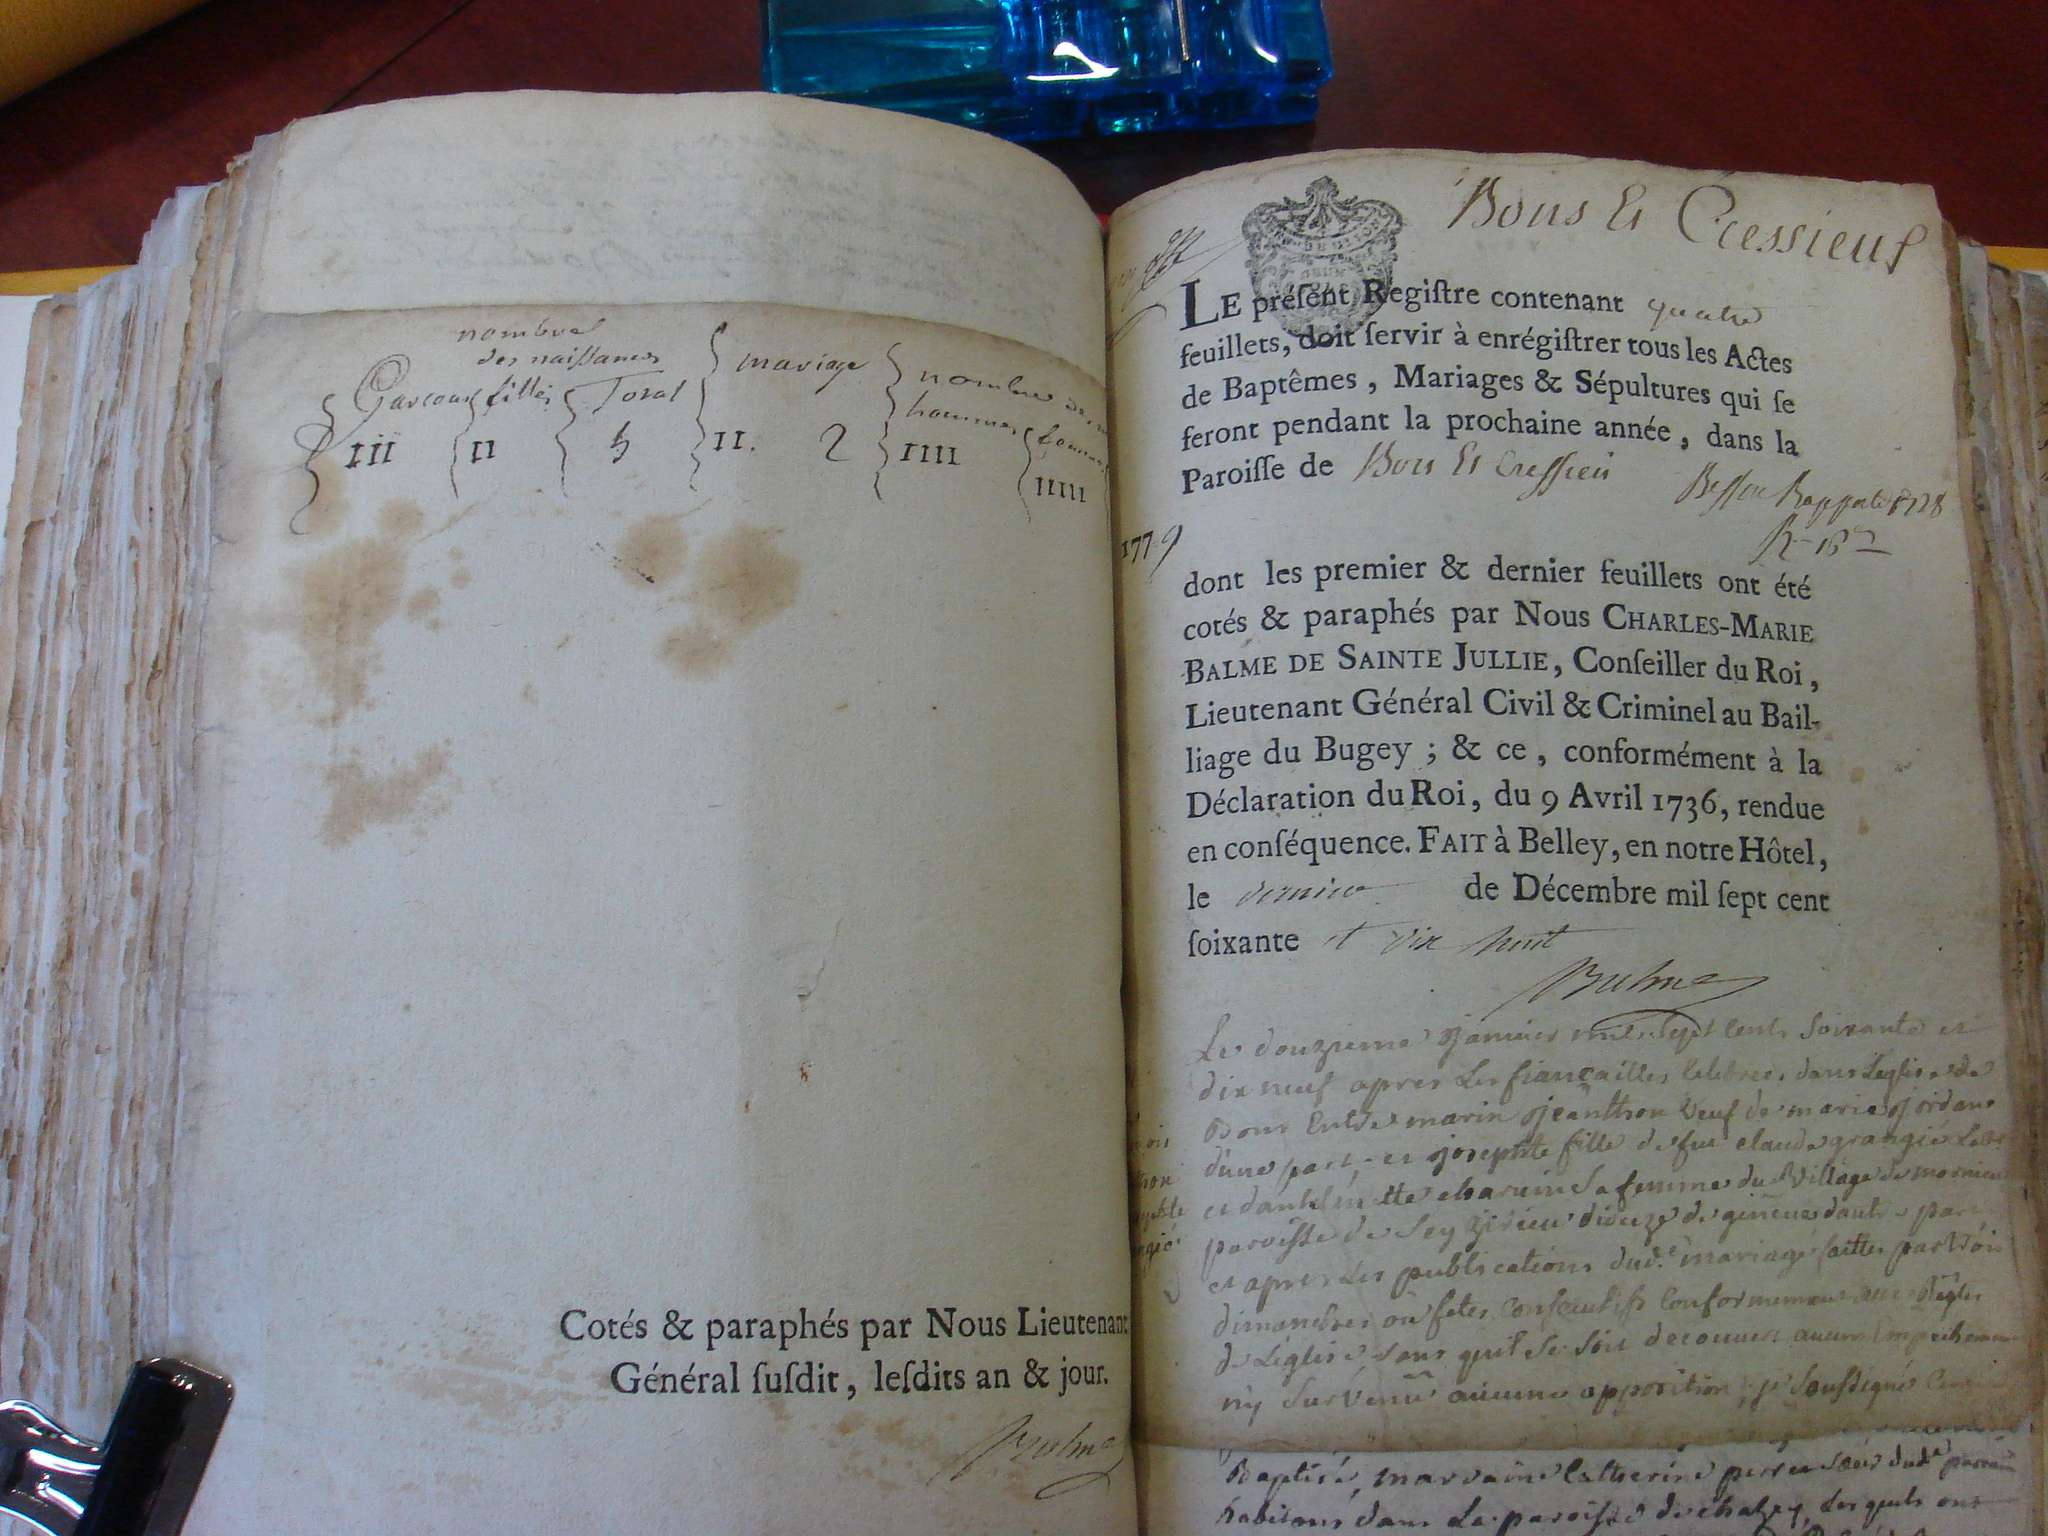 nombre
des naissances
Garcons filles Total
mariage
nombre
hommes femmes
III II 5 II. 2 IIII IIIII
Cotés & paraphés par Nous Lieutenant
Général susdit, lesdits an & jour.
Balme
Bons Et Cressieux
LE préſent Regiſtre contenant quatre
feuillets, doit ſervir à enrégiſtrer tous les Actes
de Baptêmes, Mariages & Sépultures qui ſe
feront pendant la prochaine année, dans la
Paroiſſe de Bons Et Cressieu
1779
dont les premier & dernier feuillets ont été
cotés & paraphés par Nous CHARLES-MARIE
BALME DE SAINTE JULLIE, Conſeiller du Roi,
Lieutenant Général Civil & Criminel au Bail-
liage du Bugey ; & ce, conformément à la
Déclaration du Roi, du 9 Avril 1736, rendue
en conſéquence. FAIT à Belley, en notre Hôtel,
le dernier de Décembre mil ſept cent
ſoixante et dix huit
Balme
Le douzieme janvier mil sept cents soixante et
dix neuf apres les fiançailles celebrees dans Leglise de
Bons Entre marin jeanthon veuf de marie
d'une part, et josephte fille de feu claude grangié
et sa femme du village de
paroisse de diocese de d'autre part
et apres les publications dud. mariage faittes par trois
dimanches ou fetes consecutifs conformement aux Regles
de Leglise, sans quil se soit decouvert aucun Empechement
ny survenu aucune opposition, je soussigné
Baptisé, marraine Catherine
habitans dans La paroisse de Lesquels ont